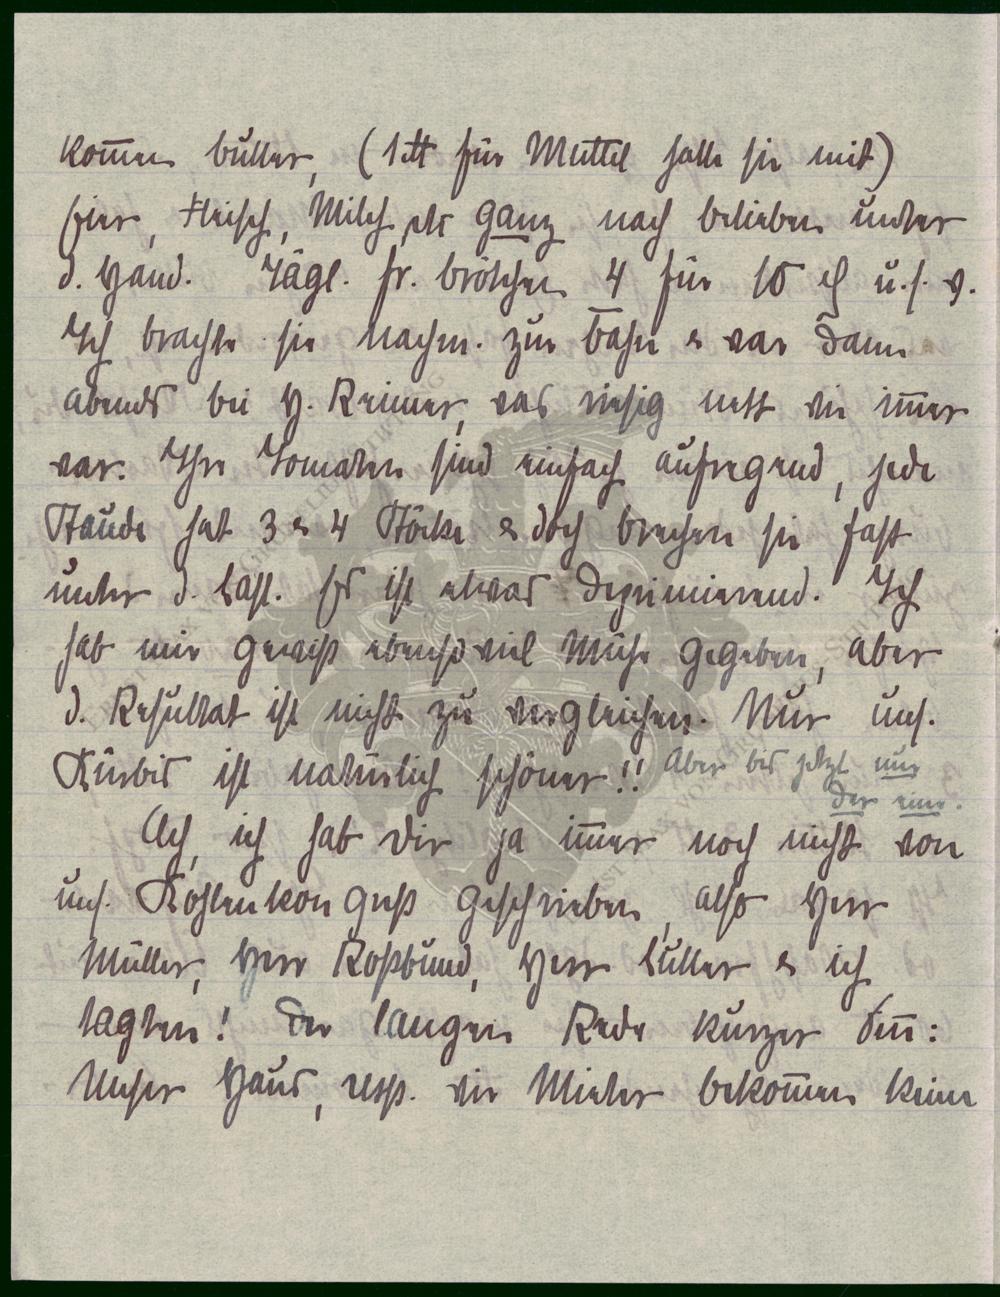 kom̅en Butter, (1 ℔ für Muttel hatte sie mit)
Eier, Fleisch, Milch etc ganz nach belieben unter
d. Hand. Tägl. fr. Brötchen 4 für 10 ₰ u.s.w.
Ich brachte sie nachm. zur Bahn & war dann
abends bei H. Reimer, was riesig nett wie im̅er
war. Ihre Tomaten sind einfach aufregend, jede
Staude hat 3 & 4 Stöcke & doch brechen sie fast
unter d. Last. Es ist etwas deprimierend. Ich
hab mir gewiss ebenso viel Mühe gegeben, aber
d. Resultat ist nicht zu vergleichen. Nur uns.
Kürbis ist natürlich schöner!! Aber bis jetzt nur
der eine.
Ach, ich hab Dir ja im̅er noch nicht von
uns. Kohlenkongreß geschrieben, also Herr
Müller, Herr Roßbund, Herr Luther & ich
tagten! Der langen Rede kurzer Sin̅:
Unser Haus, resp. wir Mieter bekom̅en keine